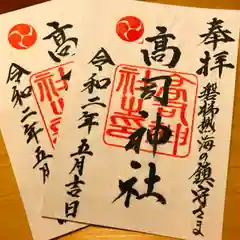 奉拝
磐梯熱海の鎮守さま
高司神社
令和二年五月吉日
高
令和二年五月